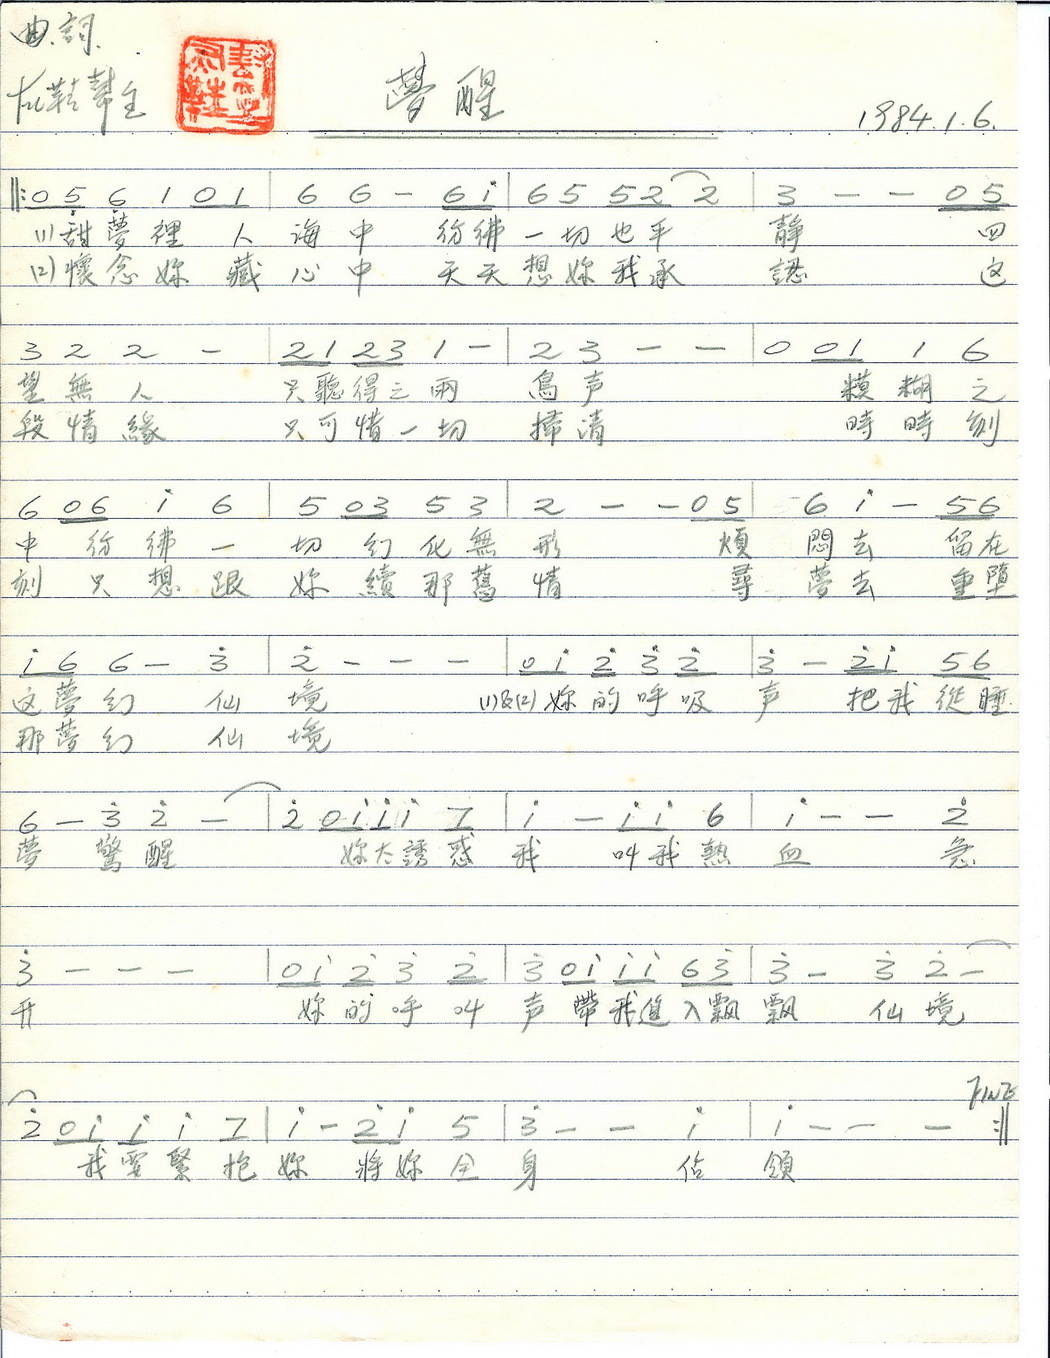 曲.詞.
鞋幫主
夢醒
1984.1.6.
‖: 0 5 6 1 0 1 | 6 6 - 6 i | 6 5 5 2 2 | 3 - - 0 5
(1) 甜夢裡 人海中 彷彿一切也平靜 四
(2) 懷念妳 藏心中 天天想妳我承認 这
3 2 2 - | 2 1 2 3 1 - | 2 3 - - | 0 0 1 1 6
望無人 只聽得三兩鳥声 糢糊之
段情緣 只可惜一切掃清 時時刻
6 0 6 i 6 | 5 0 3 5 3 | 2 - - 0 5 | 6 i - 5 6
中 彷彿一切幻化無形 煩悶去 留在
刻 只想跟妳續那舊情 尋夢去 重墮
i 6 6 - 3 | 2 - - - | 0 i 2 3 2 | 3 - 2 i 5 6
这夢幻 仙境 (1)&(2) 妳的呼吸声 把我從睡
那夢幻 仙境
6 - 3 2 - | 2 0 i i i 7 | i - i i 6 | i - - 2
夢 驚醒 妳太誘惑我 叫我熱血 急
3 - - - | 0 i 2 3 2 | 3 0 i i i 6 3 | 3 - 3 2 -
升 妳的呼叫声 帶我進入飄飄 仙境
FINE
2 0 i i i 7 | i - 2 i 5 | 3 - - i | i - - - :‖
我要緊抱妳 將妳全身 佔領